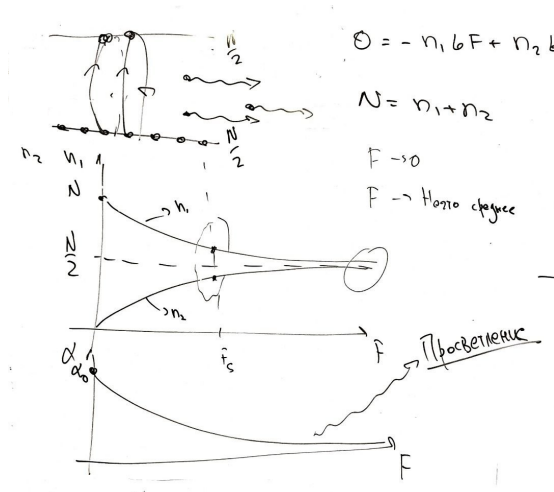 N/2
N/2
O = - n₁ б F + n₂ б
N = n₁ + n₂
F → 0
F → Нечто среднее
n₂ n₁
N
n₁
N/2
n₂
F_s
F
α
α₀
Просветление
F